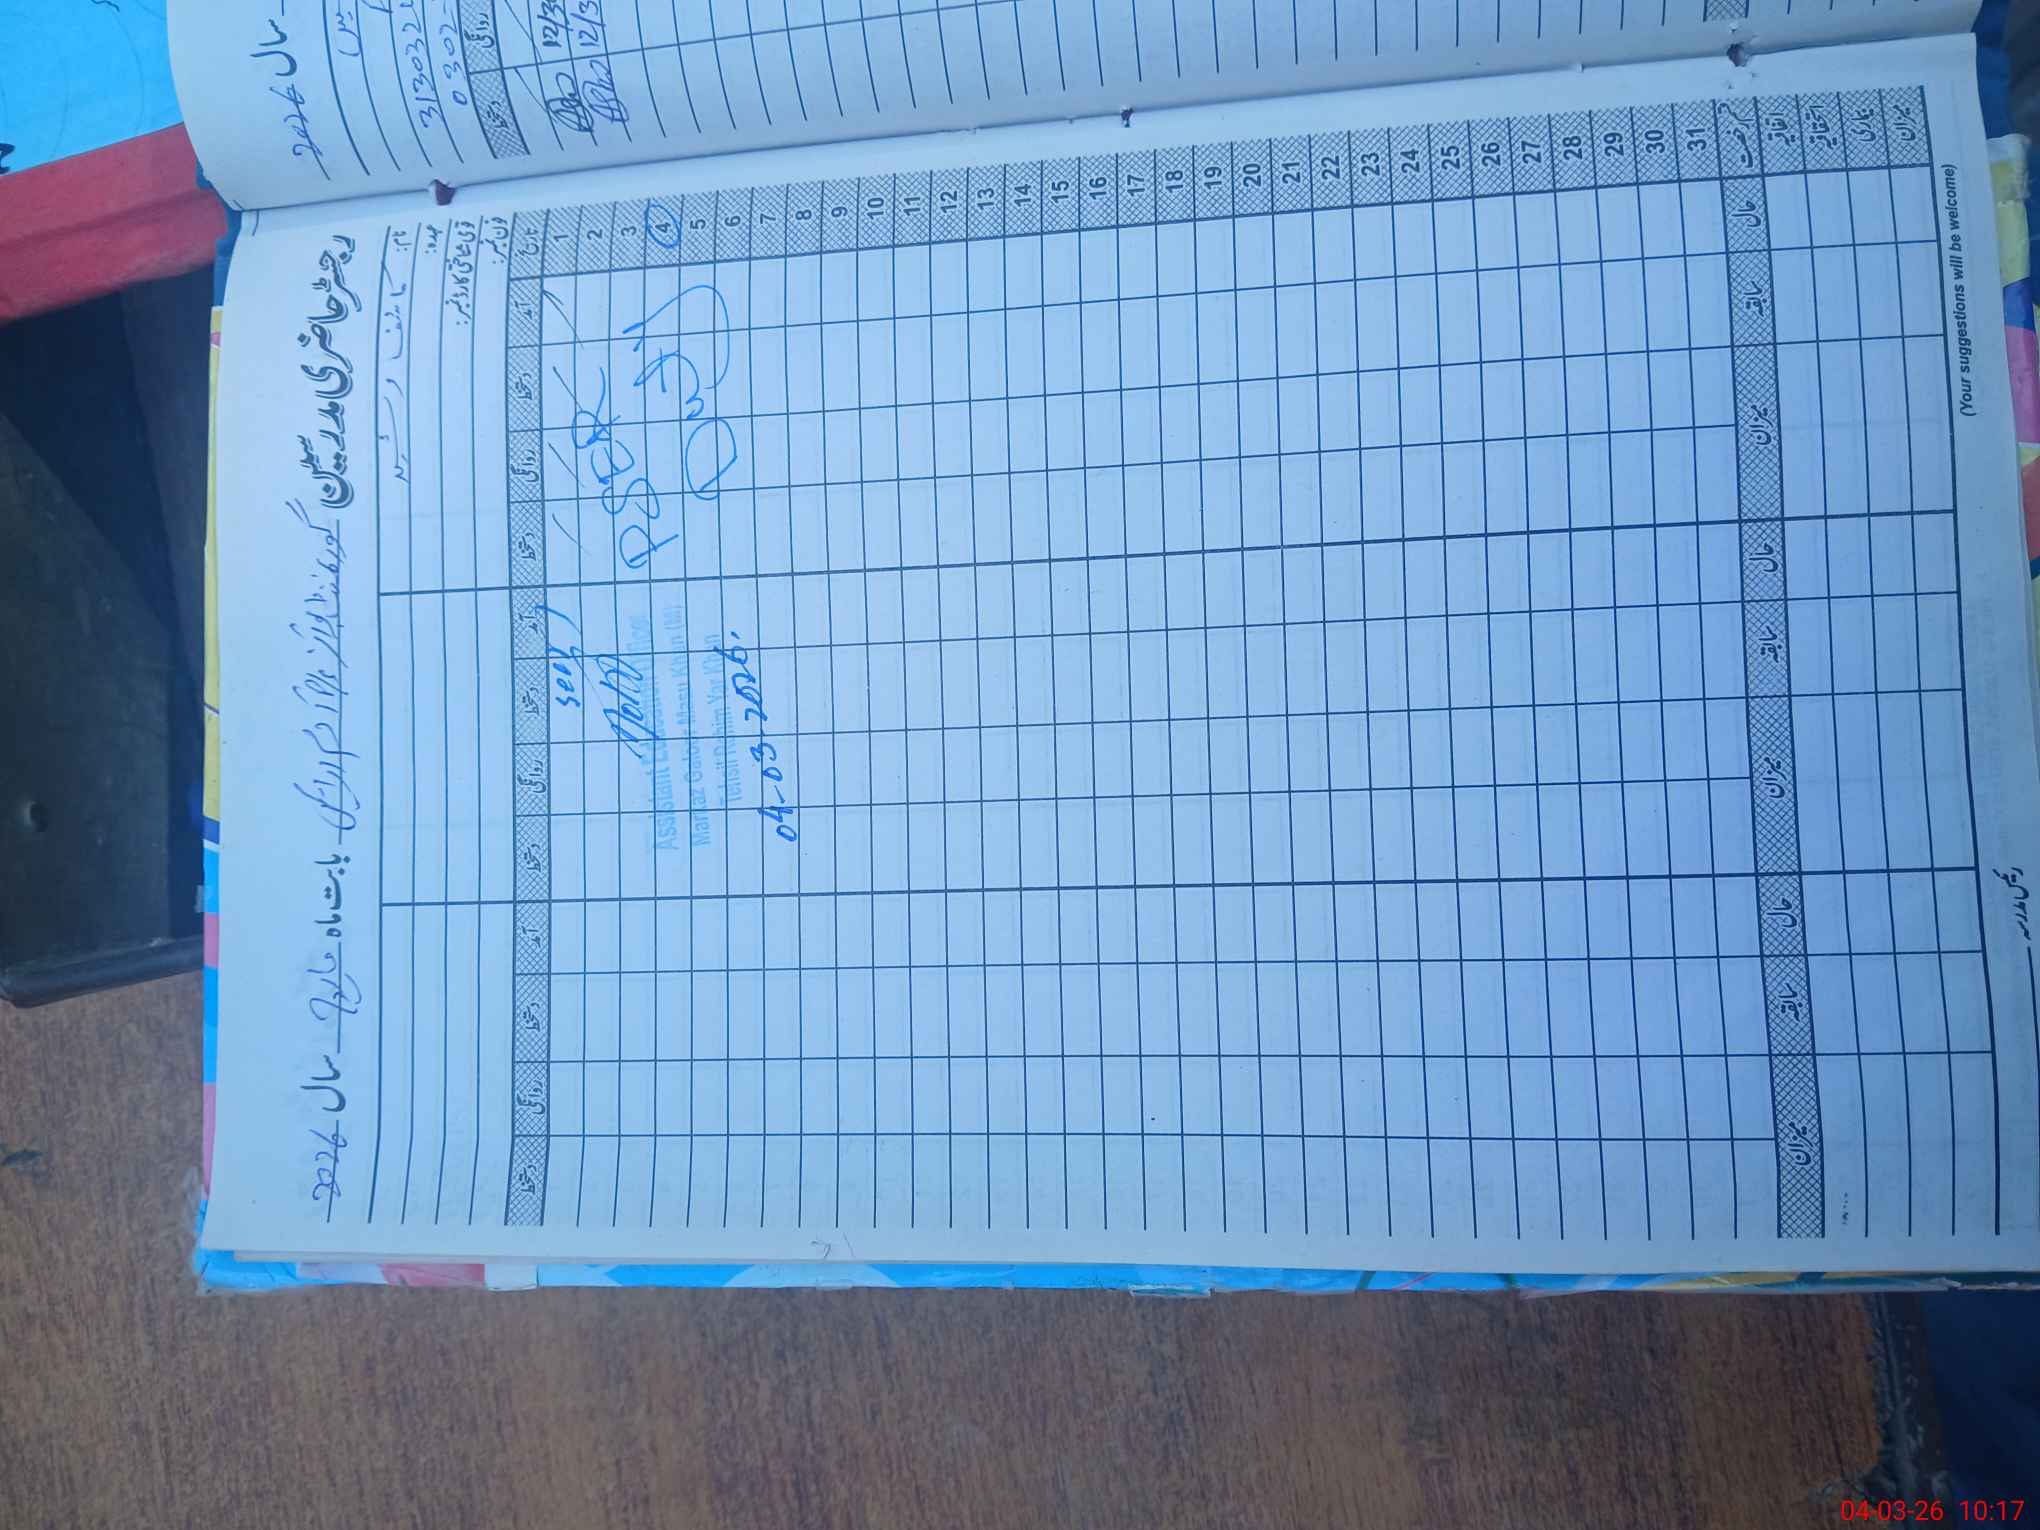 رجسٹر حاضری مدرسین گورنمنٹ بابت ماہ مارچ سال 2026
نام: کاشف رشید
عہدہ:
قومی شناختی کارڈ نمبر:
فون نمبر:
تاریخ آمد دستخط روانگی دستخط آمد دستخط روانگی دستخط آمد دستخط روانگی دستخط
1
2
3
4
5
6
7
8
9
10
11
12
13
14
15
16
17
18
19
20
21
22
23
24
25
26
27
28
29
30
31
PSER
Duty
Seen
Assistant Education Officer
Markaz
Tehsil Rahim Yar Khan
04-03-2026.
قسم رخصت حال سابقہ میزان حال سابقہ میزان حال سابقہ میزان
اتفاقیہ
استحقاقیہ
بیماری
میزان
(Your suggestions will be welcome)
رئیس مدرسہ
سال 2026
3130326
0302-
روانگی دستخط
12/3
12/3
04-03-26 10:17